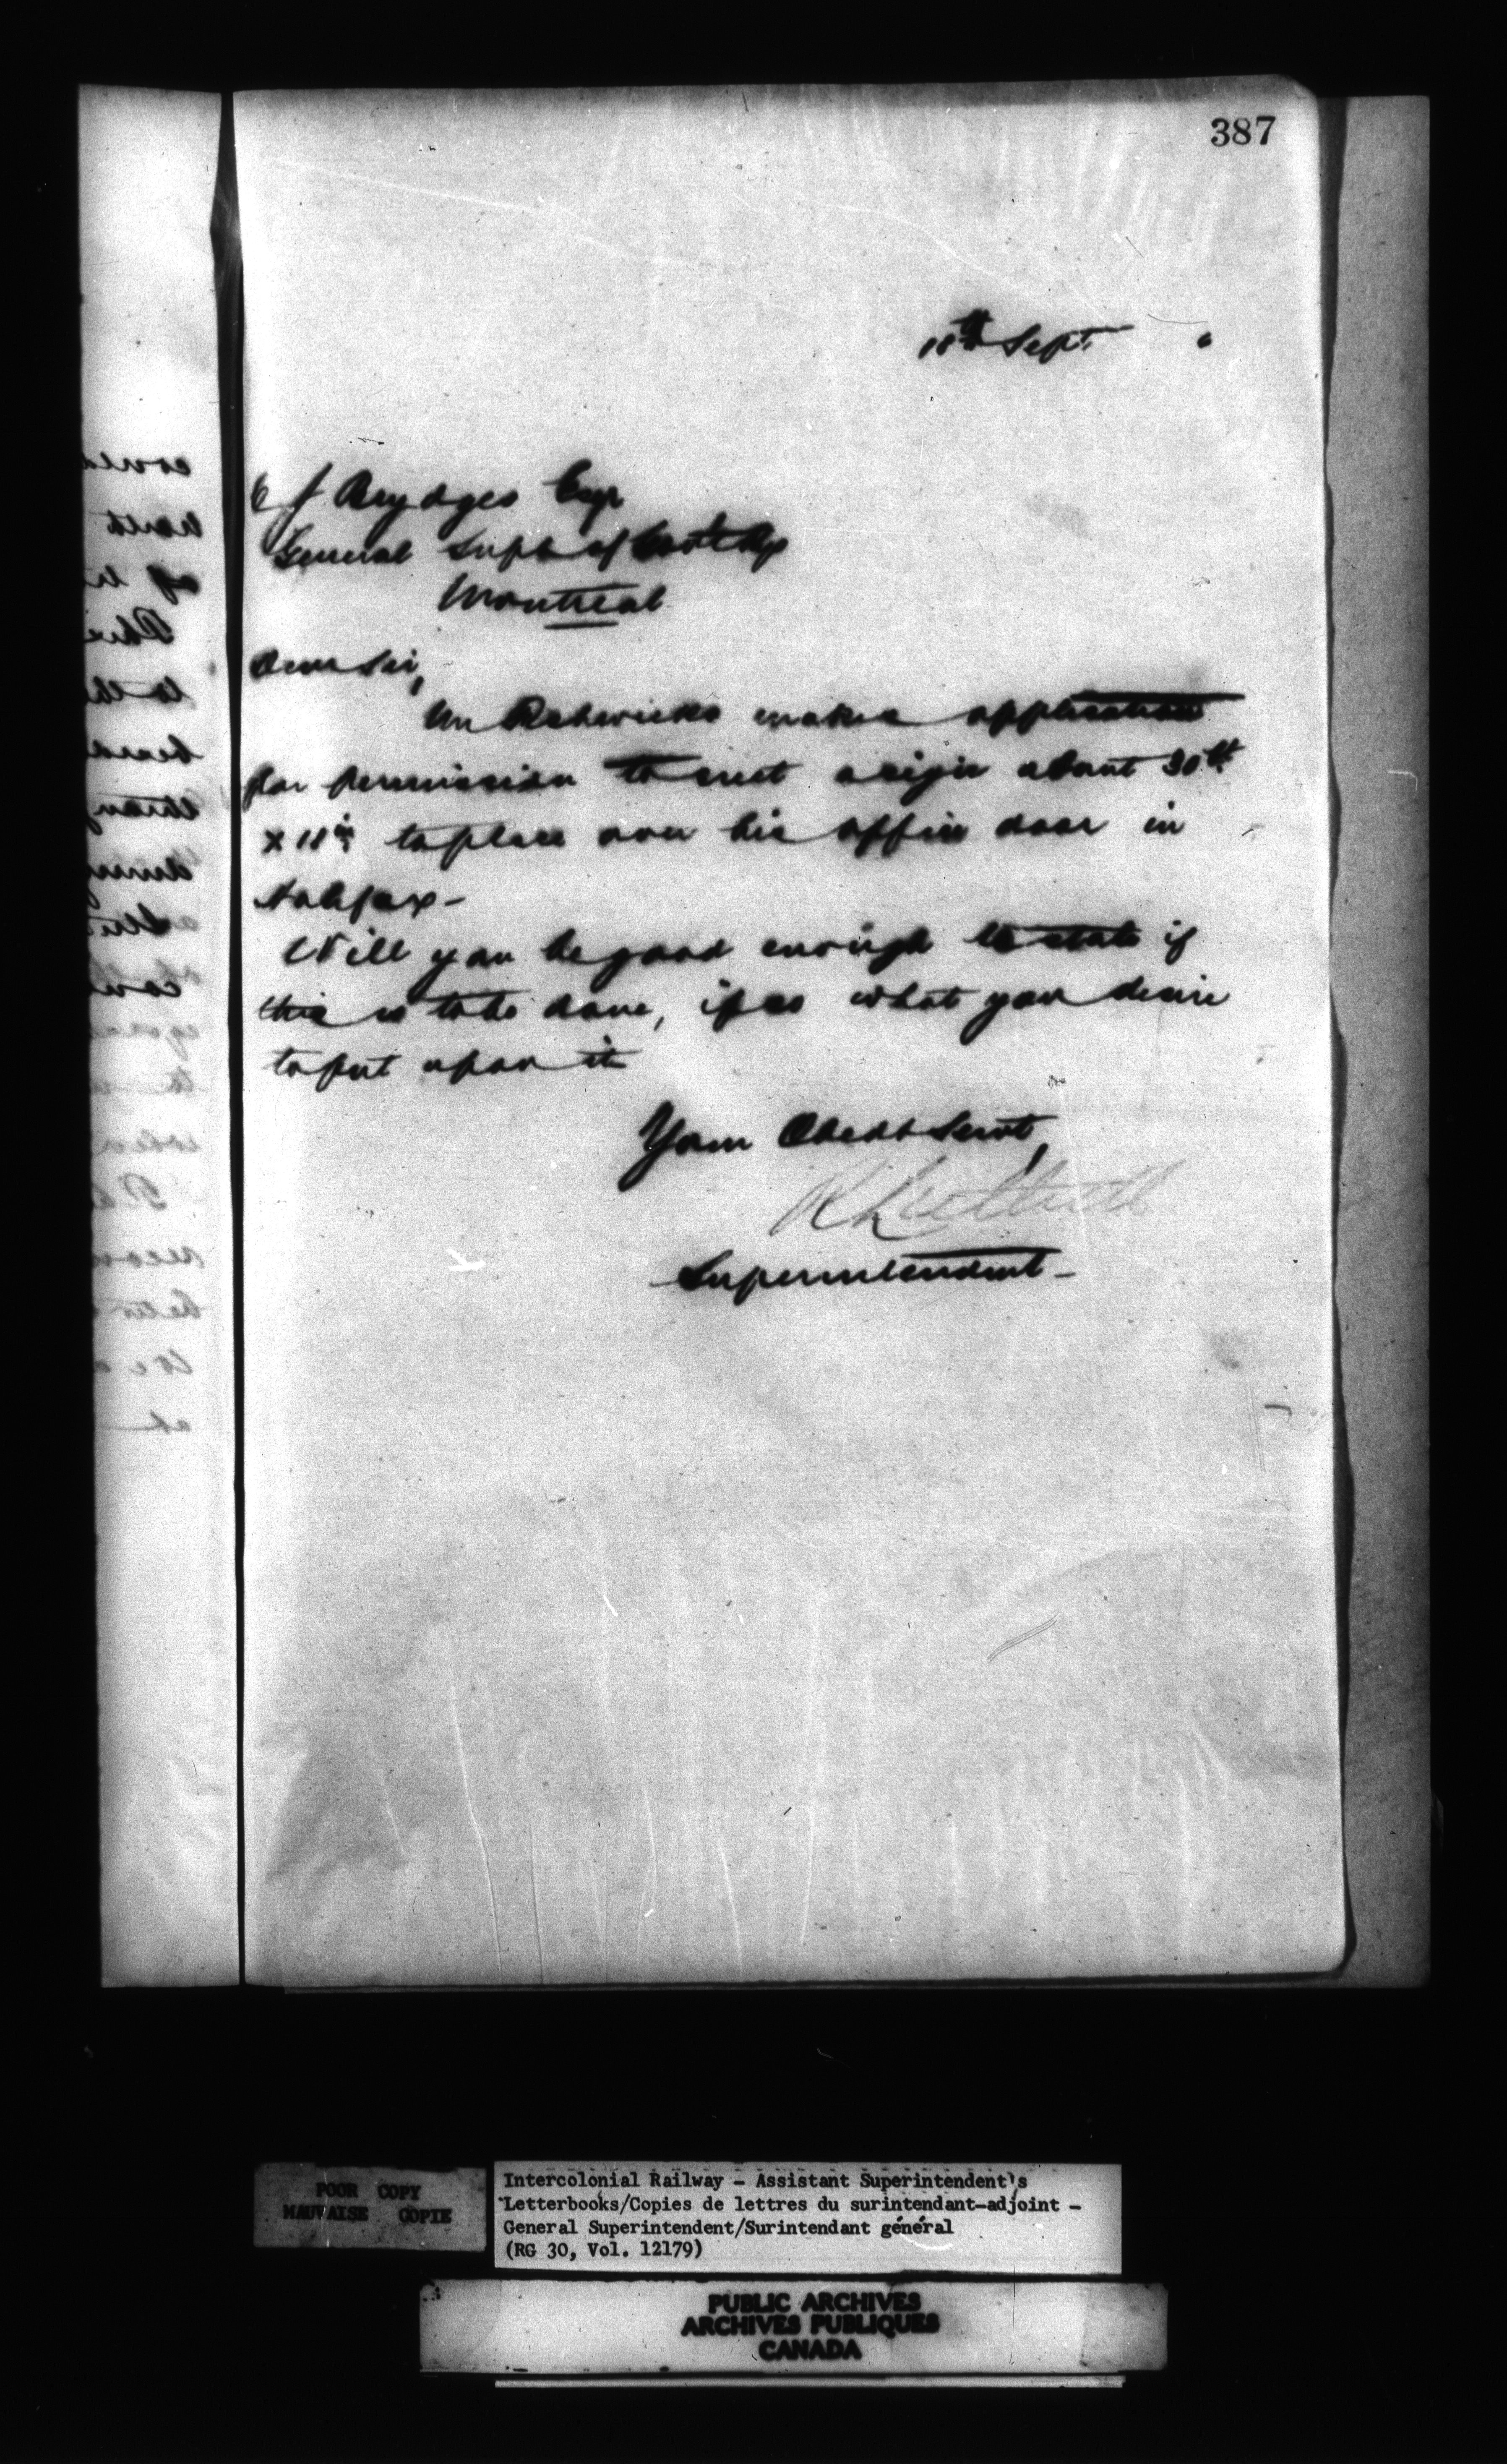 387
18th Sept.
C J Brydges Esqr
General Supt of Govt Rys
Montreal
Dear Sir,
Mr makes application
for permission to erect a sign about 30 ft
x 18 in to place over his office door in
Halifax -
Will you be good enough to state if
this is to be done, if so what you desire
to put upon it
Your Obedt Servt,
Superintendent -
POOR COPY
MAUVAISE COPIE
Intercolonial Railway - Assistant Superintendent's
Letterbooks/Copies de lettres du surintendant-adjoint -
General Superintendent/Surintendant général
(RG 30, Vol. 12179)
PUBLIC ARCHIVES
ARCHIVES PUBLIQUES
CANADA